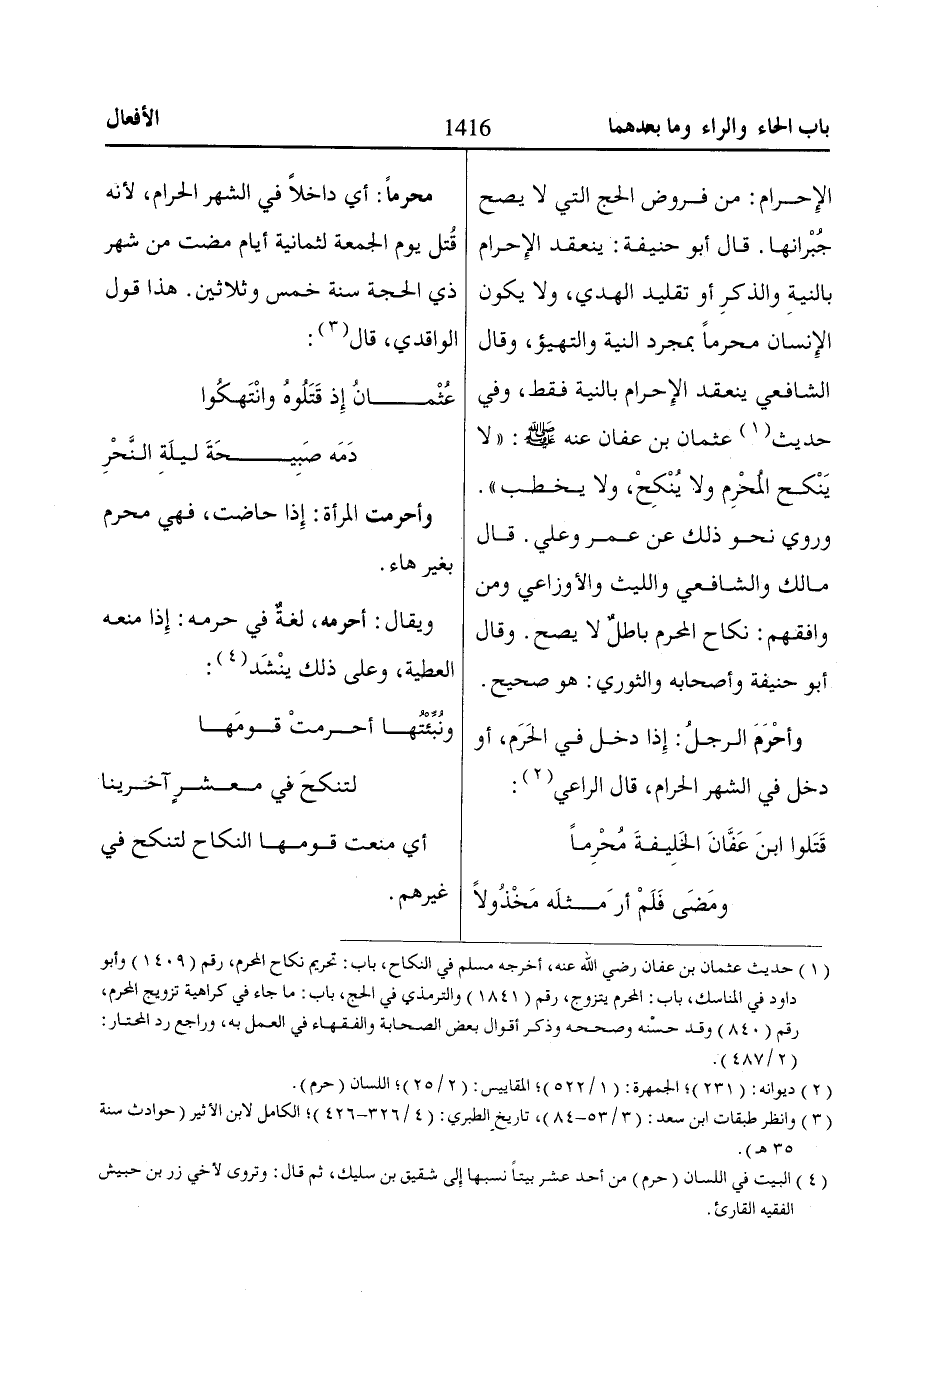 باب الحاء والراء وما بعدهما
1416
الأفعال
الإحـرام : من فـروض الحج التي لا يصح
جُبْرانها . قال أبو حنيفة : ينعقد الإحرام
بالنية والذكر أو تقليد الهدي، ولا يكون
الإنسان محرماً بمجرد النية والتهيؤ، وقال
الشافعي ينعقد الإحرام بالنية فقط، وفي
حديث(١) عثمان بن عفان عنه ﷺ : « لا
يَنْكـح المُحْرِم ولا يُنْكِحْ، ولا يـخـطـب ».
وروي نحـو ذلك عن عـمـر وعلي . قـال
مـالك والشـافـعي والليث والأوزاعي ومن
وافقـهم : نكـاح المحرم باطلٌ لا يصح . وقال
أبو حنيفة وأصحابه والثوري : هو صحيح .
وأحْرَمَ الـرجـلُ : إذا دخـل فـي الحَرَم، أو
دخل في الشهر الحرام، قال الراعي(٢) :
قَتَلوا ابنَ عَفَّانَ الخَلِيفـةَ مُحْرِمـاً
ومَضَى فَلَمْ أرَ مـثـلَه مَخْذُولاً
محرماً : أي داخلاً في الشهر الحرام، لأنه
قُتل يوم الجمعة لثمانية أيام مضت من شهر
ذي الحجة سنة خمس وثلاثين . هذا قول
الواقدي، قال(٣) :
عُثْمـــانُ إذ قَتَلُوهُ وانْتَهكُوا
دَمَه صَبِيـــحَةَ لَيـلَةِ الـنَّحْرِ
وأحرمت المرأة : إذا حاضت، فهي محرم
بغير هاء .
ويقال : أحرمه، لغةٌ في حرمه : إذا منعه
العطية، وعلى ذلك ينْشَد(٤) :
ونُبِّئْتُهـا أحـرمـتْ قـومَهـا
لتنكحَ في مـعـشـرٍ آخـرينا
أي منعت قـومـهـا النكاح لتنكح في
غيرهم .
( ١ ) حديث عثمان بن عفان رضي الله عنه، أخرجه مسلم في النكاح، باب : تحريم نكاح المحرم، رقم ( ١٤٠٩ ) وأبو
داود في المناسك، باب : المحرم يتزوج، رقم ( ١٨٤١ ) والترمذي في الحج، باب : ما جاء في كراهية تزويج المحرم،
رقم ( ٨٤٠ ) وقد حسّنه وصححه وذكر أقوال بعض الصحابة والفقهاء في العمل به، وراجع رد المحتار :
( ٢ / ٤٨٧ ).
( ٢ ) ديوانه : ( ٢٣١ )؛ الجمهرة : ( ١ / ٥٢٢ )؛ المقاييس : ( ٢ / ٢٥ )؛ اللسان ( حرم ).
( ٣ ) وانظر طبقات ابن سعد : ( ٣ / ٥٣-٨٤ )، تاريخ الطبري : ( ٤ / ٣٢٦-٤٢٦ )؛ الكامل لابن الأثير ( حوادث سنة
٣٥ هـ ).
( ٤ ) البيت في اللسان ( حرم ) من أحد عشر بيتاً نسبها إلى شقيق بن سليك، ثم قال : وتروى لأخي زر بن حبيش
الفقيه القارئ .